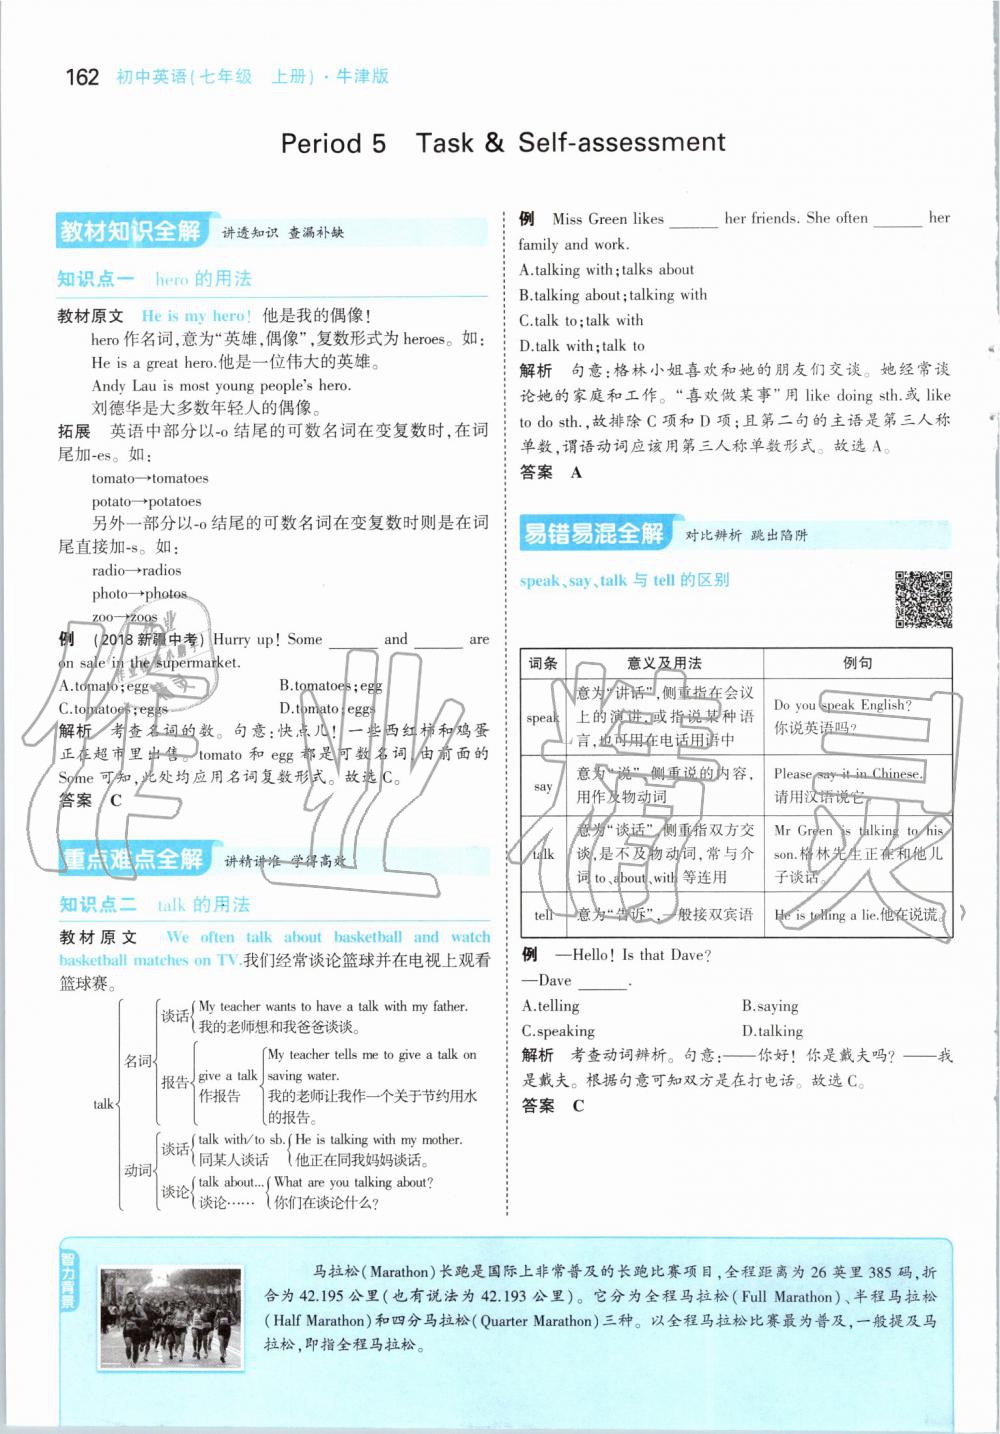 162 初中英语(七年级 上册)·牛津版
Period 5 Task & Self-assessment
教材知识全解 讲透知识 查漏补缺
知识点一 hero 的用法
教材原文 He is my hero! 他是我的偶像!
hero 作名词,意为“英雄,偶像”,复数形式为 heroes。如:
He is a great hero.他是一位伟大的英雄。
Andy Lau is most young people's hero.
刘德华是大多数年轻人的偶像。
拓展 英语中部分以-o 结尾的可数名词在变复数时,在词
尾加-es。如:
tomato→tomatoes
potato→potatoes
另外一部分以-o 结尾的可数名词在变复数时则是在词
尾直接加-s。如:
radio→radios
photo→photos
zoo→zoos
例 (2018新疆中考) Hurry up! Some ______ and ______ are
on sale in the supermarket.
A.tomato;egg B.tomatoes;egg
C.tomatoes;eggs D.tomato;eggs
解析 考查名词的数。句意:快点儿!一些西红柿和鸡蛋
正在超市里出售。tomato 和 egg 都是可数名词,由前面的
Some 可知,此处均应用名词复数形式。故选 C。
答案 C
重点难点全解 讲精讲准 学得高效
知识点二 talk 的用法
教材原文 We often talk about basketball and watch
basketball matches on TV.我们经常谈论篮球并在电视上观看
篮球赛。
talk
名词
谈话
My teacher wants to have a talk with my father.
我的老师想和我爸爸谈谈。
报告
give a talk
作报告
My teacher tells me to give a talk on
saving water.
我的老师让我作一个关于节约用水
的报告。
动词
谈话
talk with/to sb.
同某人谈话
He is talking with my mother.
他正在同我妈妈谈话。
谈论
talk about...
谈论……
What are you talking about?
你们在谈论什么?
例 Miss Green likes ______ her friends. She often ______ her
family and work.
A.talking with;talks about
B.talking about;talking with
C.talk to;talk with
D.talk with;talk to
解析 句意:格林小姐喜欢和她的朋友们交谈。她经常谈
论她的家庭和工作。“喜欢做某事”用 like doing sth.或 like
to do sth.,故排除 C 项和 D 项;且第二句的主语是第三人称
单数,谓语动词应该用第三人称单数形式。故选 A。
答案 A
易错易混全解 对比辨析 跳出陷阱
speak、say、talk 与 tell 的区别
词条 意义及用法 例句
speak 意为“讲话”,侧重指在会议
上的演讲,或指说某种语
言,也可用在电话用语中
Do you speak English?
你说英语吗?
say 意为“说”,侧重说的内容,
用作及物动词
Please say it in Chinese.
请用汉语说它。
talk 意为“谈话”,侧重指双方交
谈,是不及物动词,常与介
词 to、about、with 等连用
Mr Green is talking to his
son.格林先生正在和他儿
子谈话。
tell 意为“告诉”,一般接双宾语
He is telling a lie.他在说谎。
例 —Hello! Is that Dave?
—Dave ______.
A.telling B.saying
C.speaking D.talking
解析 考查动词辨析。句意:——你好!你是戴夫吗?——我
是戴夫。根据句意可知双方是在打电话。故选 C。
答案 C
智力背景
马拉松(Marathon)长跑是国际上非常普及的长跑比赛项目,全程距离为 26 英里 385 码,折
合为 42.195 公里(也有说法为 42.193 公里)。它分为全程马拉松(Full Marathon)、半程马拉松
(Half Marathon)和四分马拉松(Quarter Marathon)三种。以全程马拉松比赛最为普及,一般提及马
拉松,即指全程马拉松。
作业精灵